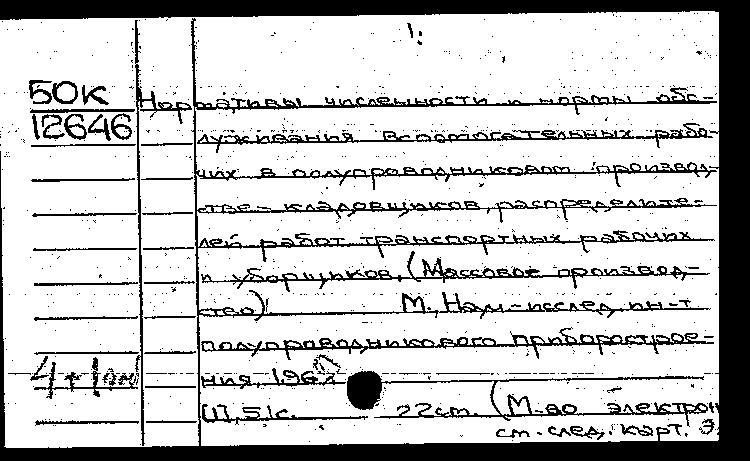 50К
12646
Нормативы численности и нормы обс-
луживания вспомогательных рабо-
чих в полупроводниковом производ-
стве - кладовщиков, распределите-
лей работ транспортных рабочих
и уборщиков. (Массовое производ-
ство) М., Науч.-исслед. ин-т
полупроводникового приборострое-
ния, 196
51с. 22см. (М-во электрон
см. след. карт.